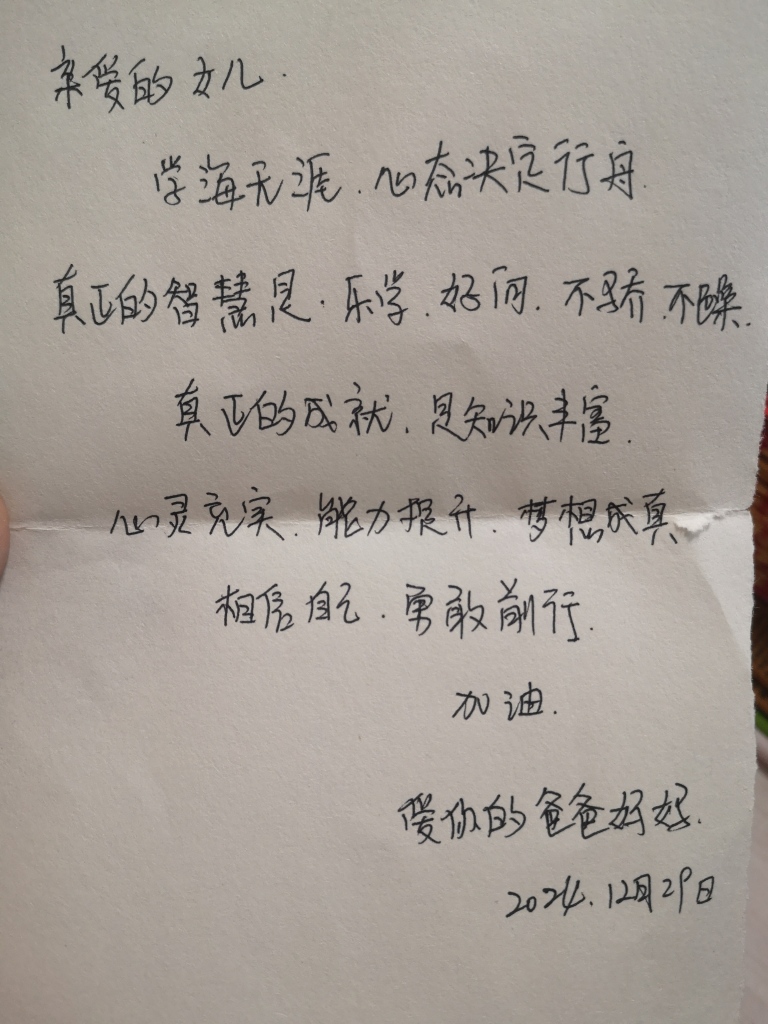 亲爱的女儿.
学海无涯.心态决定行舟.
真正的智慧是.乐学.好问.不骄.不躁.
真正的成就.是知识丰富.
心灵充实.能力提升.梦想成真
相信自己.勇敢前行.
加油.
爱你的爸爸妈妈.
2024.12月29日